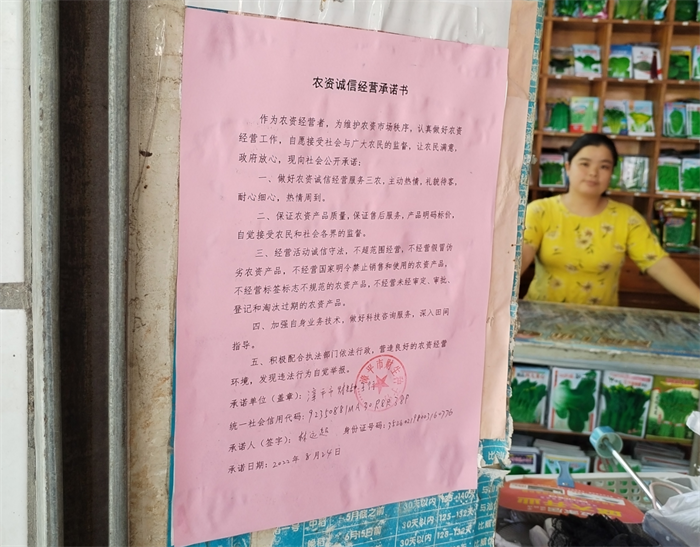 农资诚信经营承诺书
作为农资经营者，为维护农资市场秩序，认真做好农资
经营工作，自愿接受社会与广大农民的监督，让农民满意，
政府放心，现向社会公开承诺：
一、做好农资诚信经营服务三农，主动热情，礼貌待客，
耐心细心，热情周到。
二、保证农资产品质量，保证售后服务，产品明码标价，
自觉接受农民和社会各界的监督。
三、经营活动诚信守法，不超范围经营，不经营假冒伪
劣农资产品，不经营国家明令禁止销售和使用的农资产品，
不经营标签标志不规范的农资产品，不经营未经审定、审批、
登记和淘汰过期的农资产品。
四、加强自身业务技术，做好科技咨询服务，深入田间
指导。
五、积极配合执法部门依法行政，营造良好的农资经营
环境，发现违法行为自觉举报。
承诺单位（盖章）：漳平市
统一社会信用代码：
承诺人（签字）： 身份证号码：
承诺日期：2022年8月24日
5月15前
30天以内
30天以内